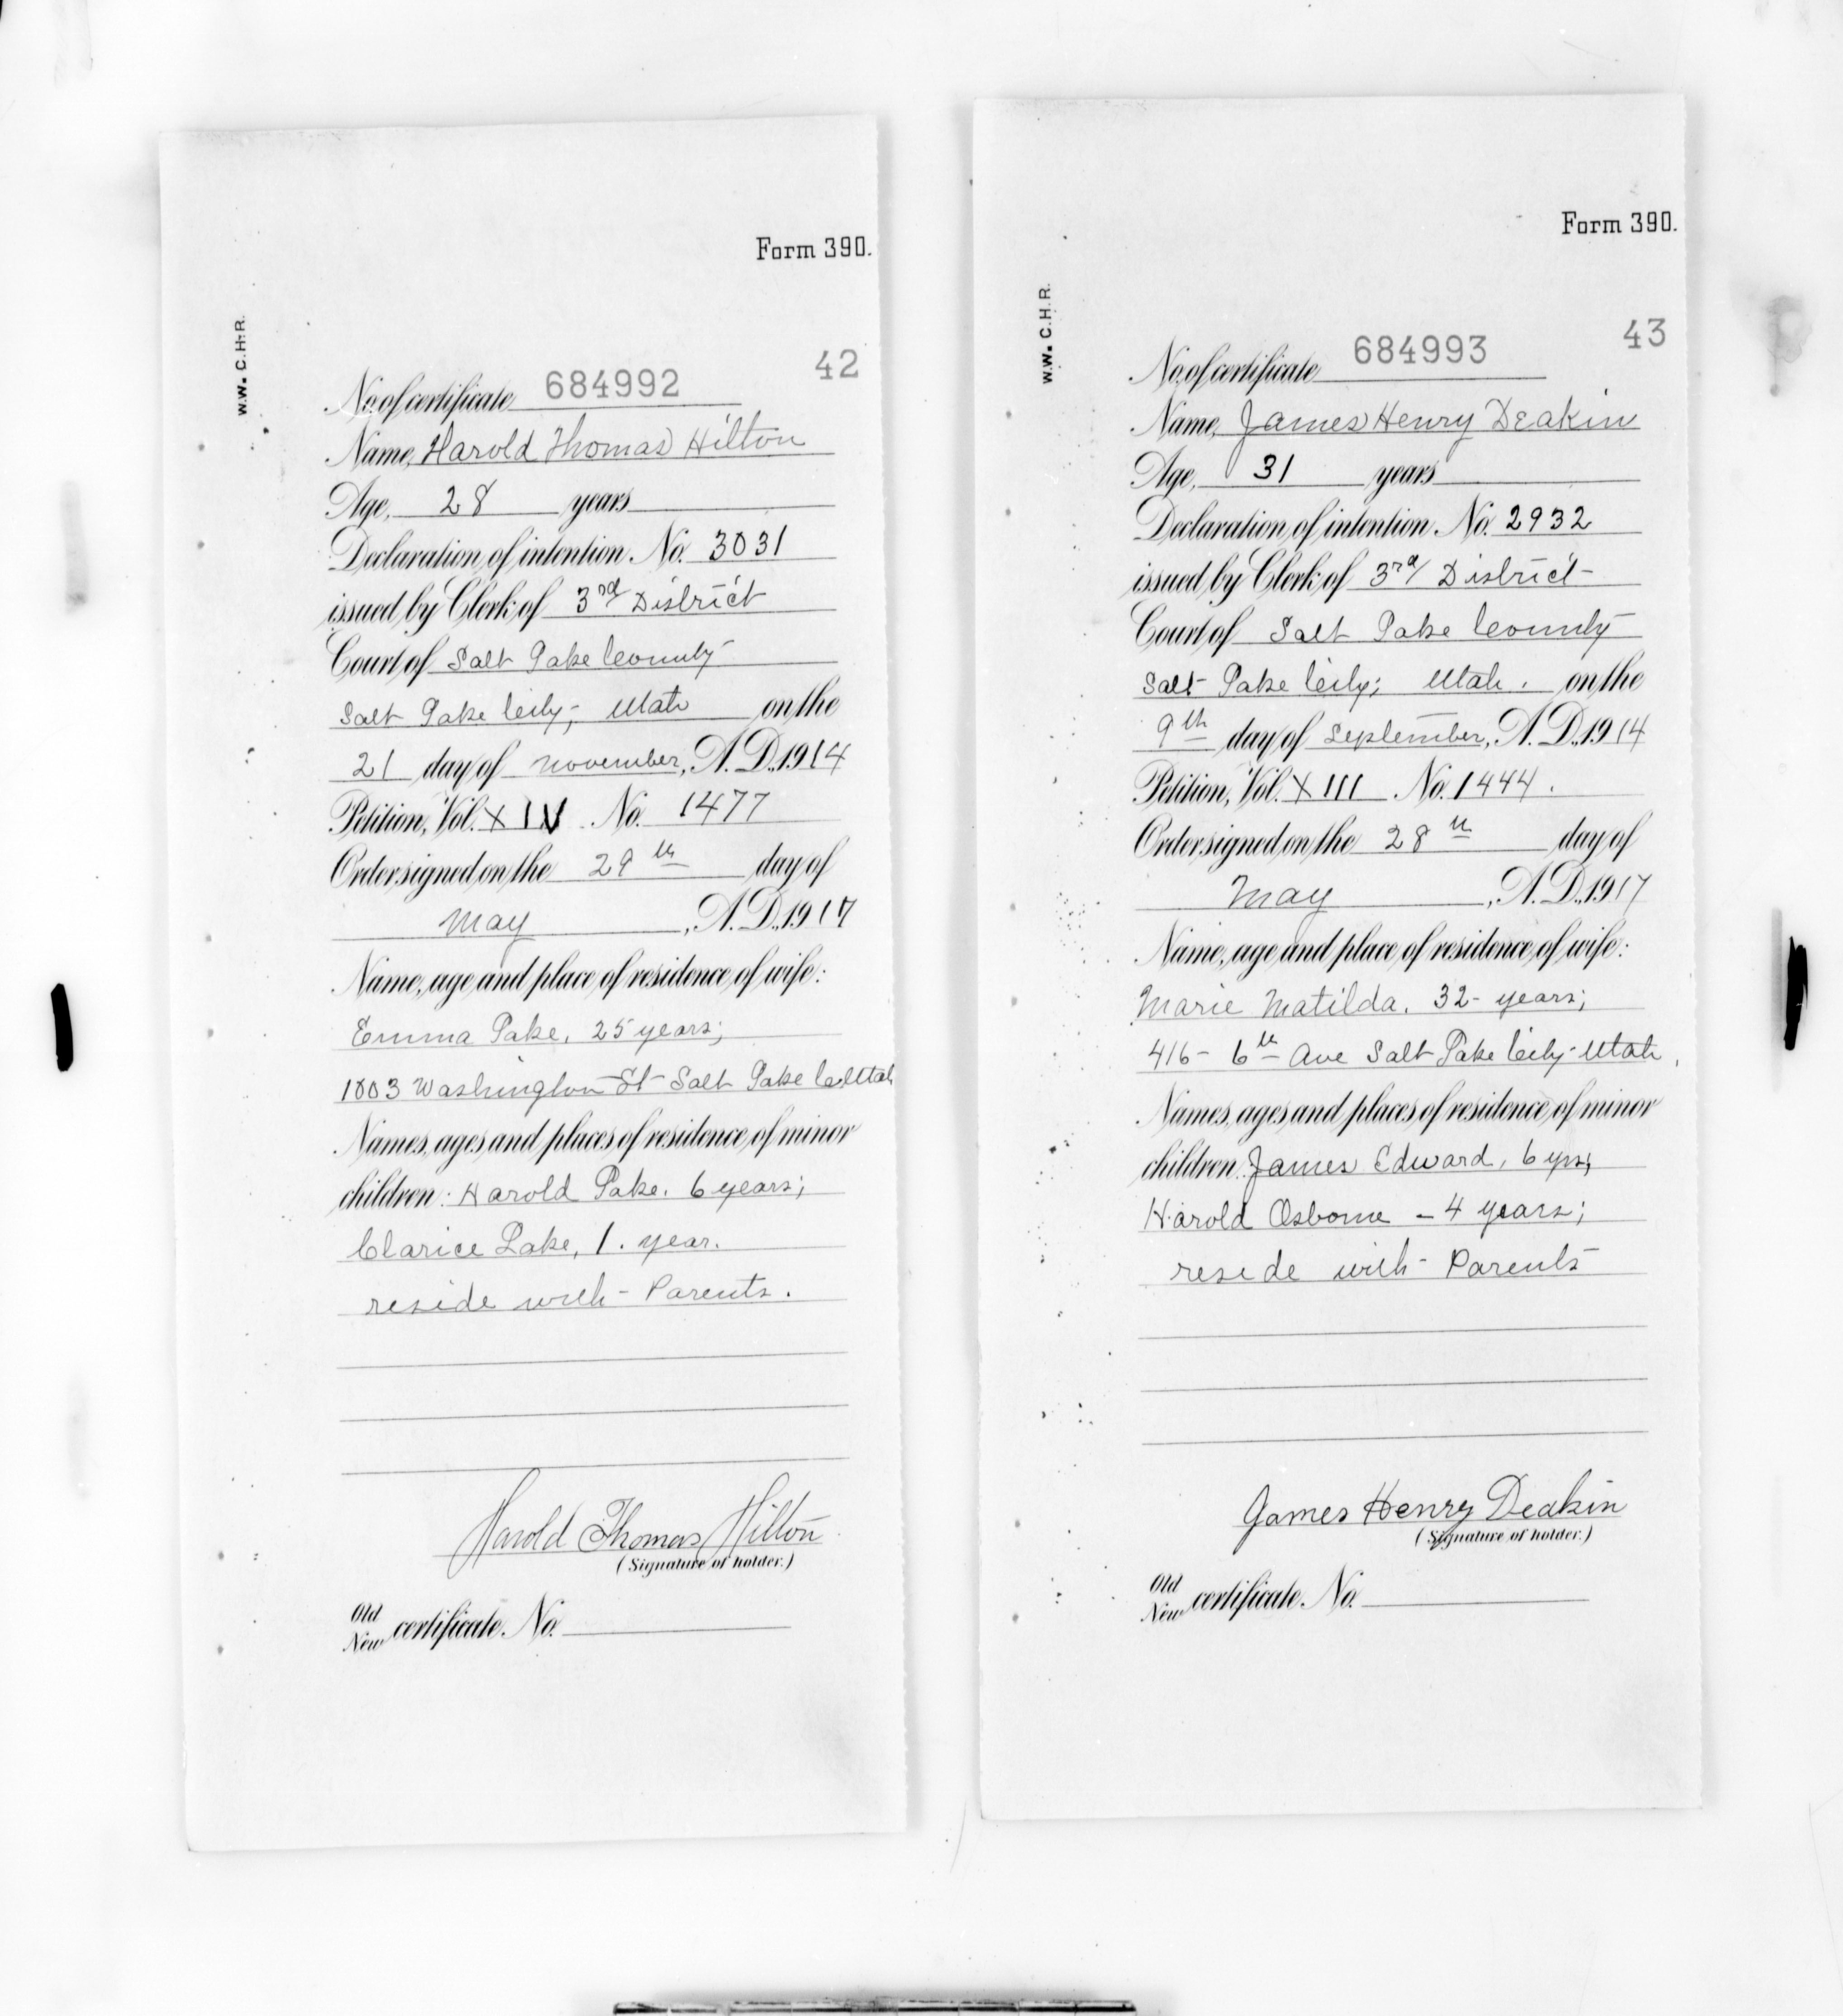 Form 390.
W.W. C.H.R.
42
No. of certificate 684992
Name, Harold Thomas Hilton
Age, 28 years
Declaration of intention No. 3031
issued by Clerk of 3rd District
Court of Salt Lake County
Salt Lake City, Utah on the
21 day of November, A. D. 1914
Petition, Vol. XIV No. 1477
Order signed on the 29th day of
May, A. D. 1917
Name, age and place of residence of wife:
Emma Lake, 25 years;
1003 Washington St Salt Lake C Utah
Names, ages and places of residence of minor
children: Harold Lake. 6 years;
Clarice Lake, 1. year.
reside with - Parents.
Harold Thomas Hilton
(Signature of holder.)
Old
New certificate No.
Form 390.
W.W. C.H.R.
43
No. of certificate 684993
Name, James Henry Deakin
Age, 31 years
Declaration of intention No. 2932
issued by Clerk of 3rd District
Court of Salt Lake County
Salt Lake City; Utah. on the
9th day of September, A. D. 1914
Petition, Vol. XIII No. 1444.
Order signed on the 28th day of
May, A. D. 1917
Name, age and place of residence of wife:
Marie Matilda. 32 - years;
416 - 6th Ave Salt Lake City - Utah.
Names, ages and places of residence of minor
children James Edward, 6 yrs;
Harold Osborne - 4 years;
reside with - Parents
James Henry Deakin
(Signature of holder.)
Old
New certificate No.